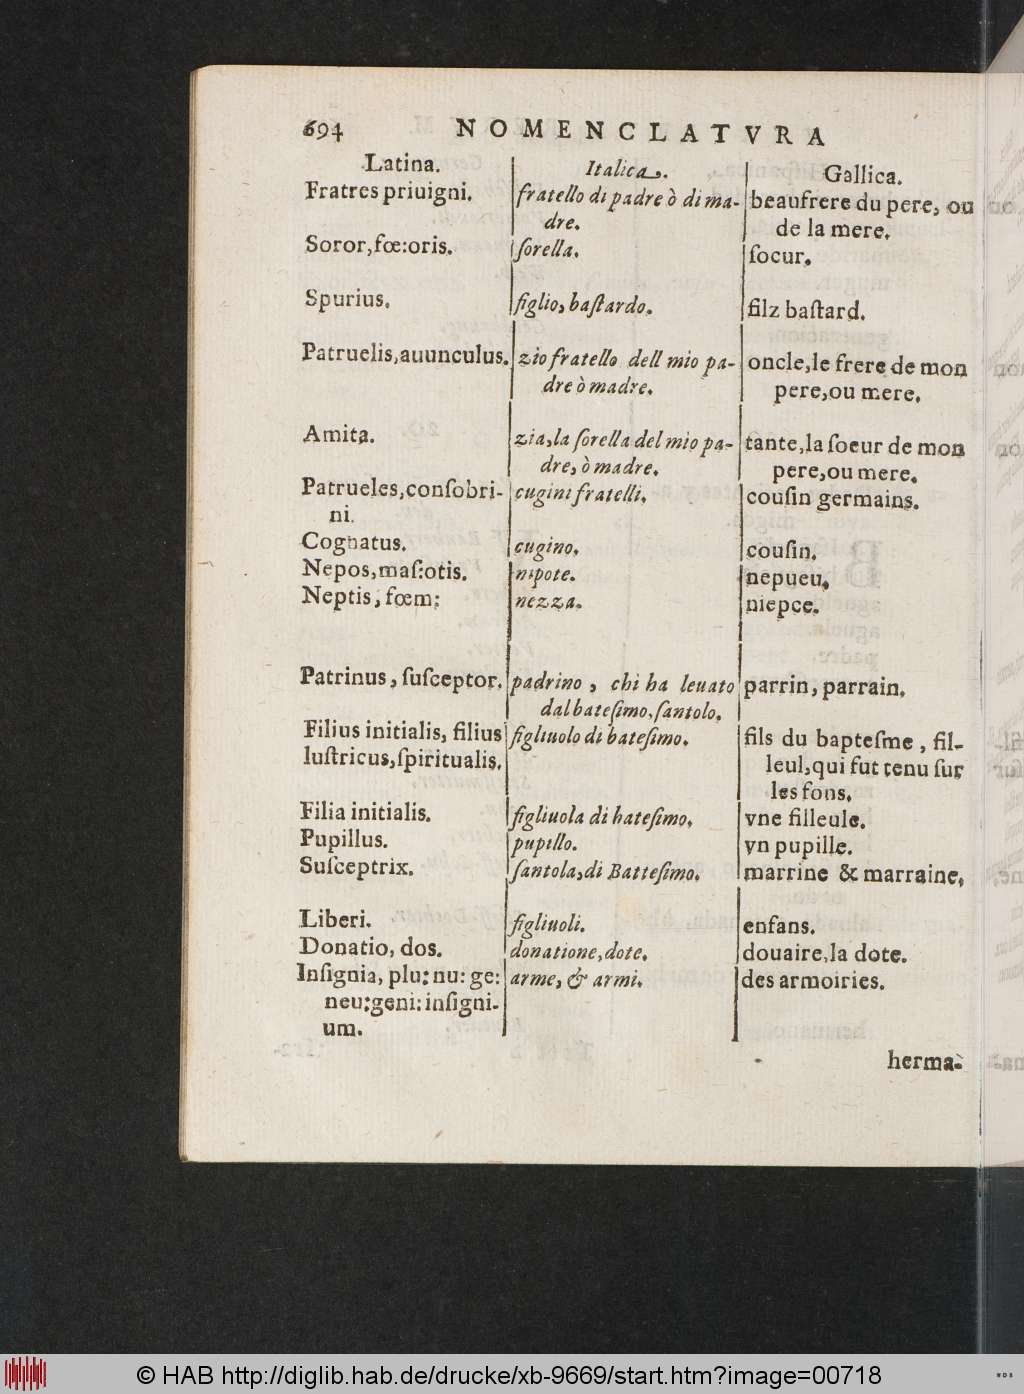 694 NOMENCLATVRA
Latina.
Fratres priuigni.
Soror, fœ:oris.
Spurius.
Patruelis, auunculus.
Amita.
Patrueles, conſobri-
ni.
Cognatus.
Nepos, maſ:otis.
Neptis, fœm:
Patrinus, ſuſceptor.
Filius initialis, filius
luſtricus, ſpiritualis.
Filia initialis.
Pupillus.
Suſceptrix.
Liberi.
Donatio, dos.
Inſignia, plu: nu: ge:
neu: geni: inſigni-
um.
Italica.
fratello di padre ò di ma-
dre.
ſorella.
figlio, baſtardo.
zio fratello dell mio pa-
dre ò madre.
zia, la ſorella del mio pa-
dre, ò madre.
cugini fratelli.
cugino.
nipote.
nezza.
padrino, chi ha leuato
dal bateſimo, ſantolo.
figliuolo di bateſimo.
figliuola di bateſimo.
pupillo.
ſantola, di Batteſimo.
figliuoli.
donatione, dote.
arme, & armi.
Gallica.
beaufrere du pere, ou
de la mere.
ſocur.
filz baſtard.
oncle, le frere de mon
pere, ou mere.
tante, la ſoeur de mon
pere, ou mere.
couſin germains.
couſin.
nepueu.
niepce.
parrin, parrain.
fils du bapteſme, fil-
leul, qui fut tenu ſur
les fons.
vne filleule.
vn pupille.
marrine & marraine.
enfans.
douaire, la dote.
des armoiries.
herma-
© HAB http://diglib.hab.de/drucke/xb-9669/start.htm?image=00718